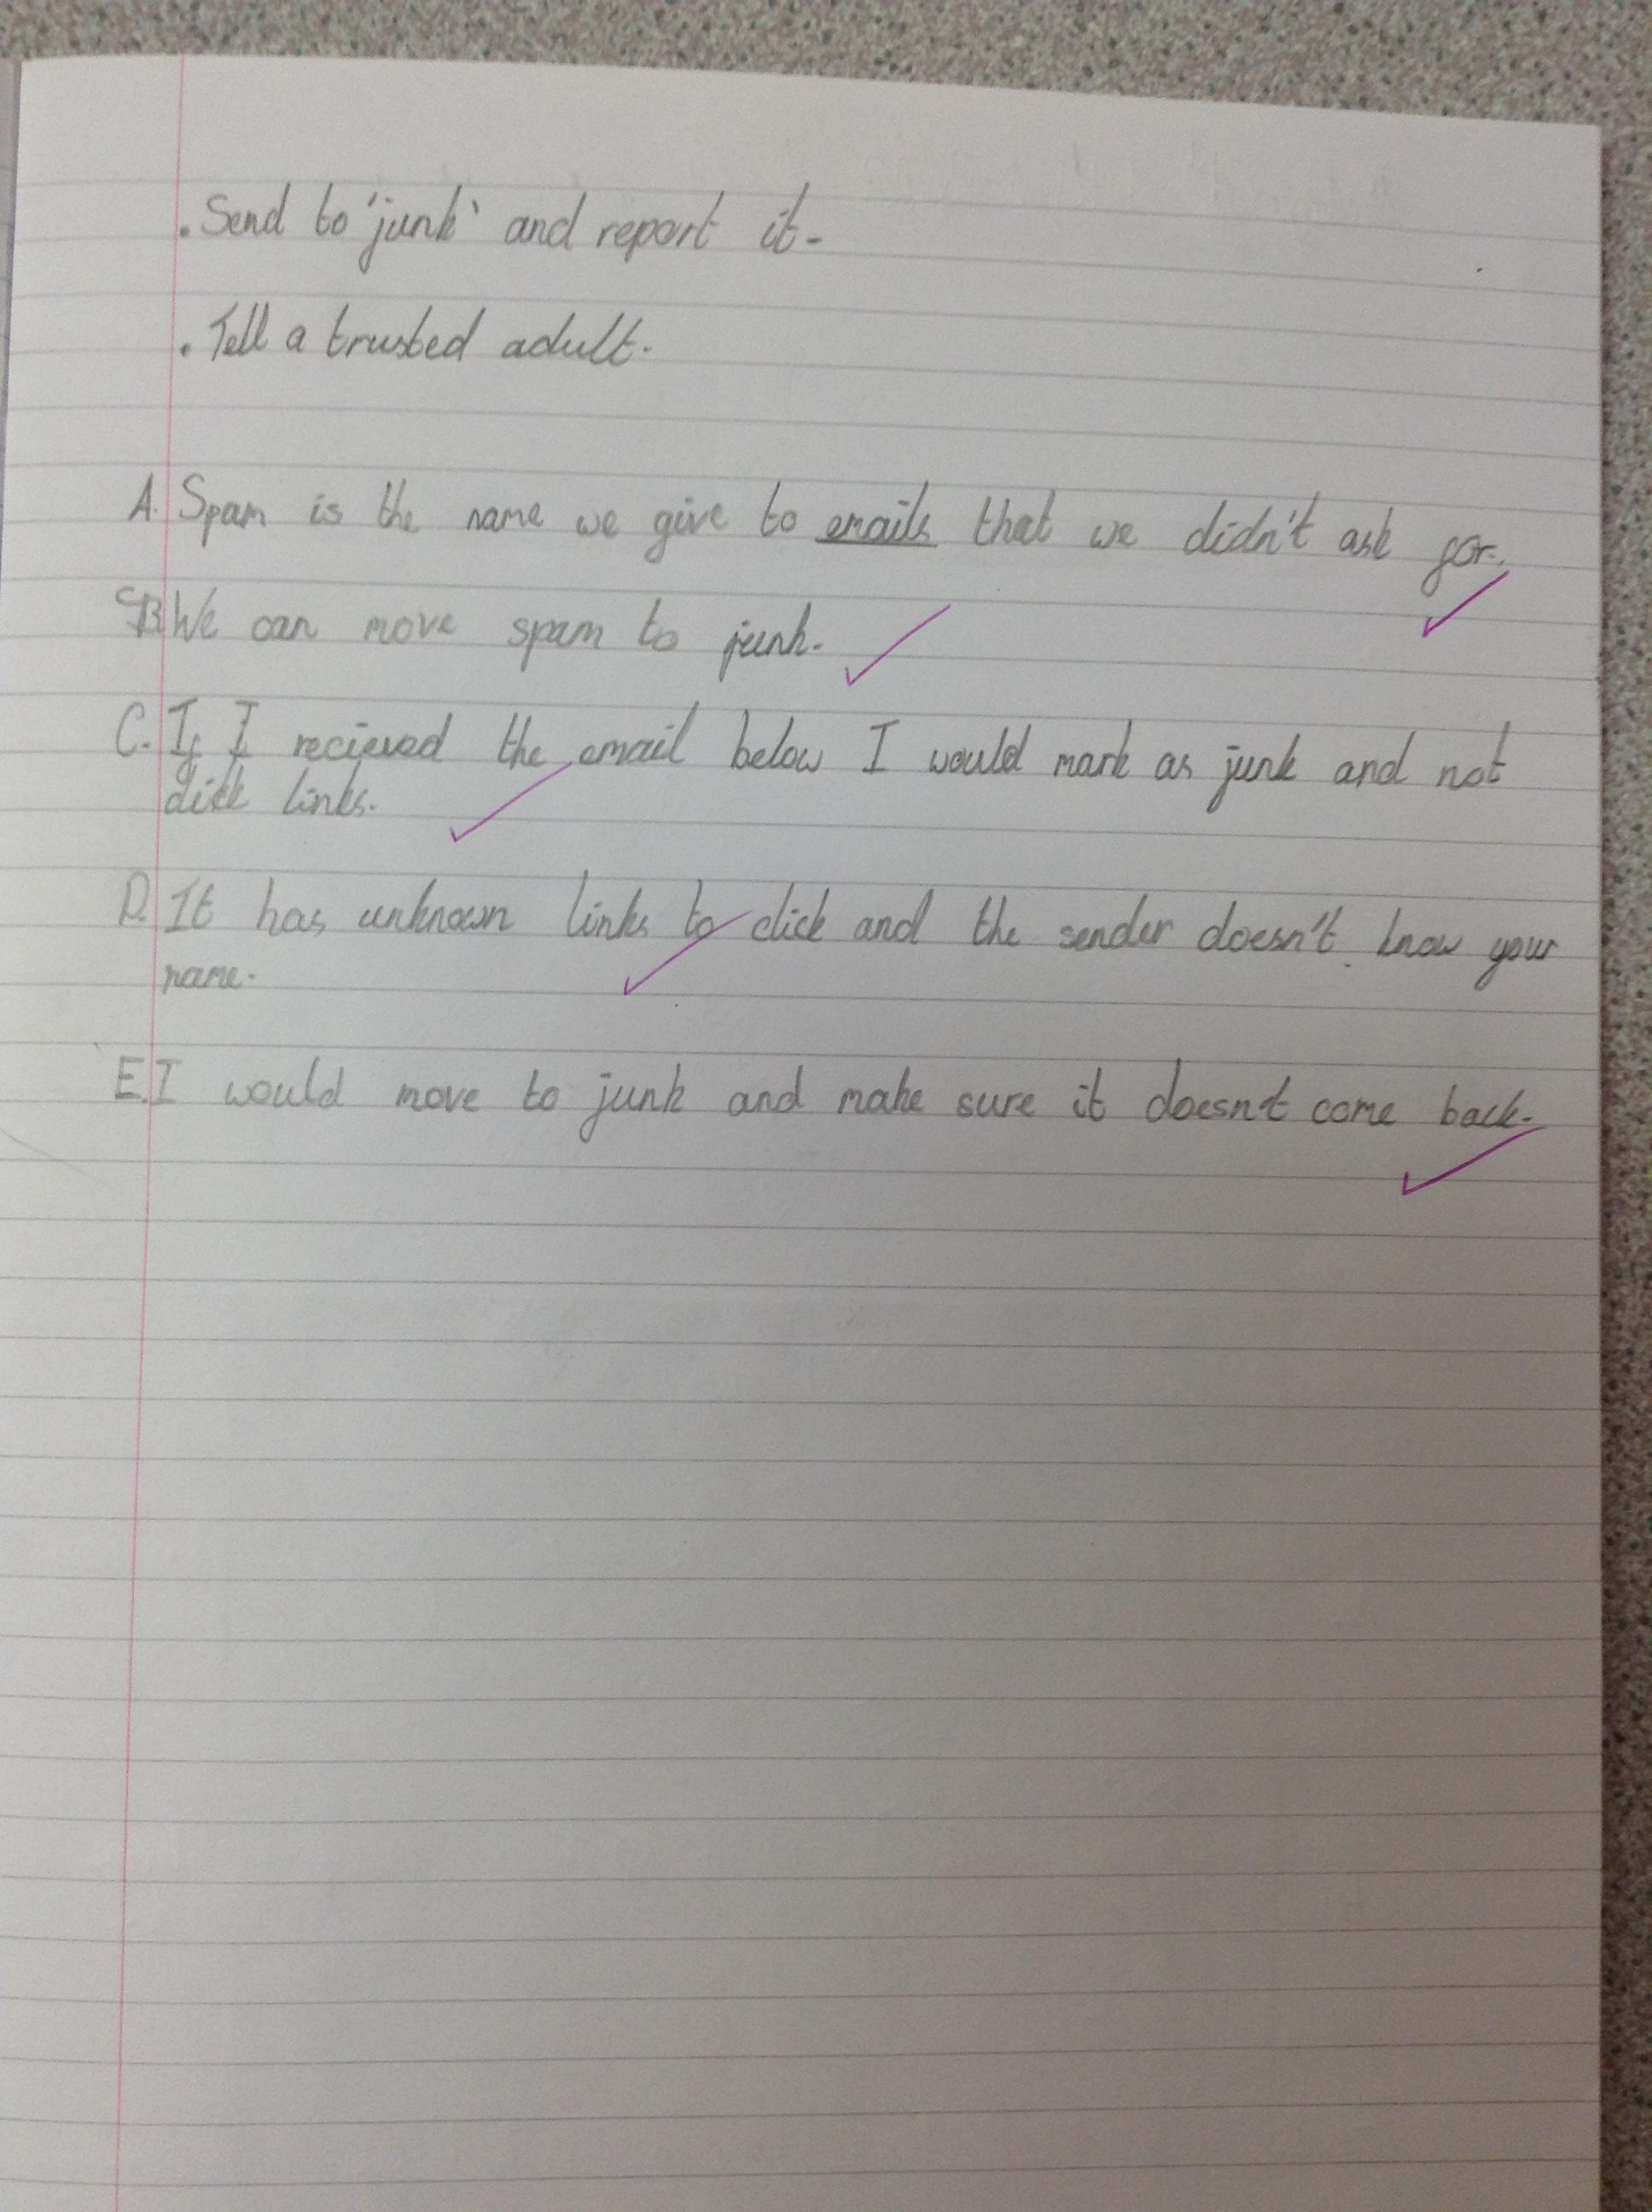 . Send to 'junk' and report it.
. Tell a trusted adult.
A. Spam is the name we give to emails that we didn't ask for.
B. We can move spam to junk.
C. If I recieved the email below I would mark as junk and not
click links.
D. It has unknown links to click and the sender doesn't know your
name.
E. I would move to junk and make sure it doesn't come back.